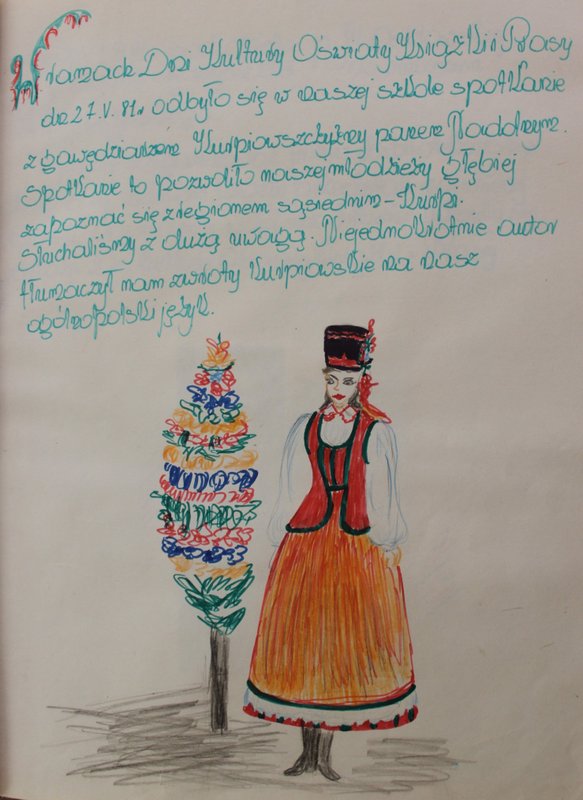 W ramach Dni Kultury Oświaty Książki i Prasy
dn 27.V.81r odbyło się w naszej szkole spotkanie
z gawędziarzem Kurpiowszczyzny panem Nadolnym.
spotkanie to pozwoliło naszej młodzieży głębiej
zapoznać się z regionem sąsiednim - Kurpi.
Słuchaliśmy z dużą uwagą. Niejednokrotnie autor
tłumaczył nam zwroty kurpiowskie na nasz
ogólnopolski język.